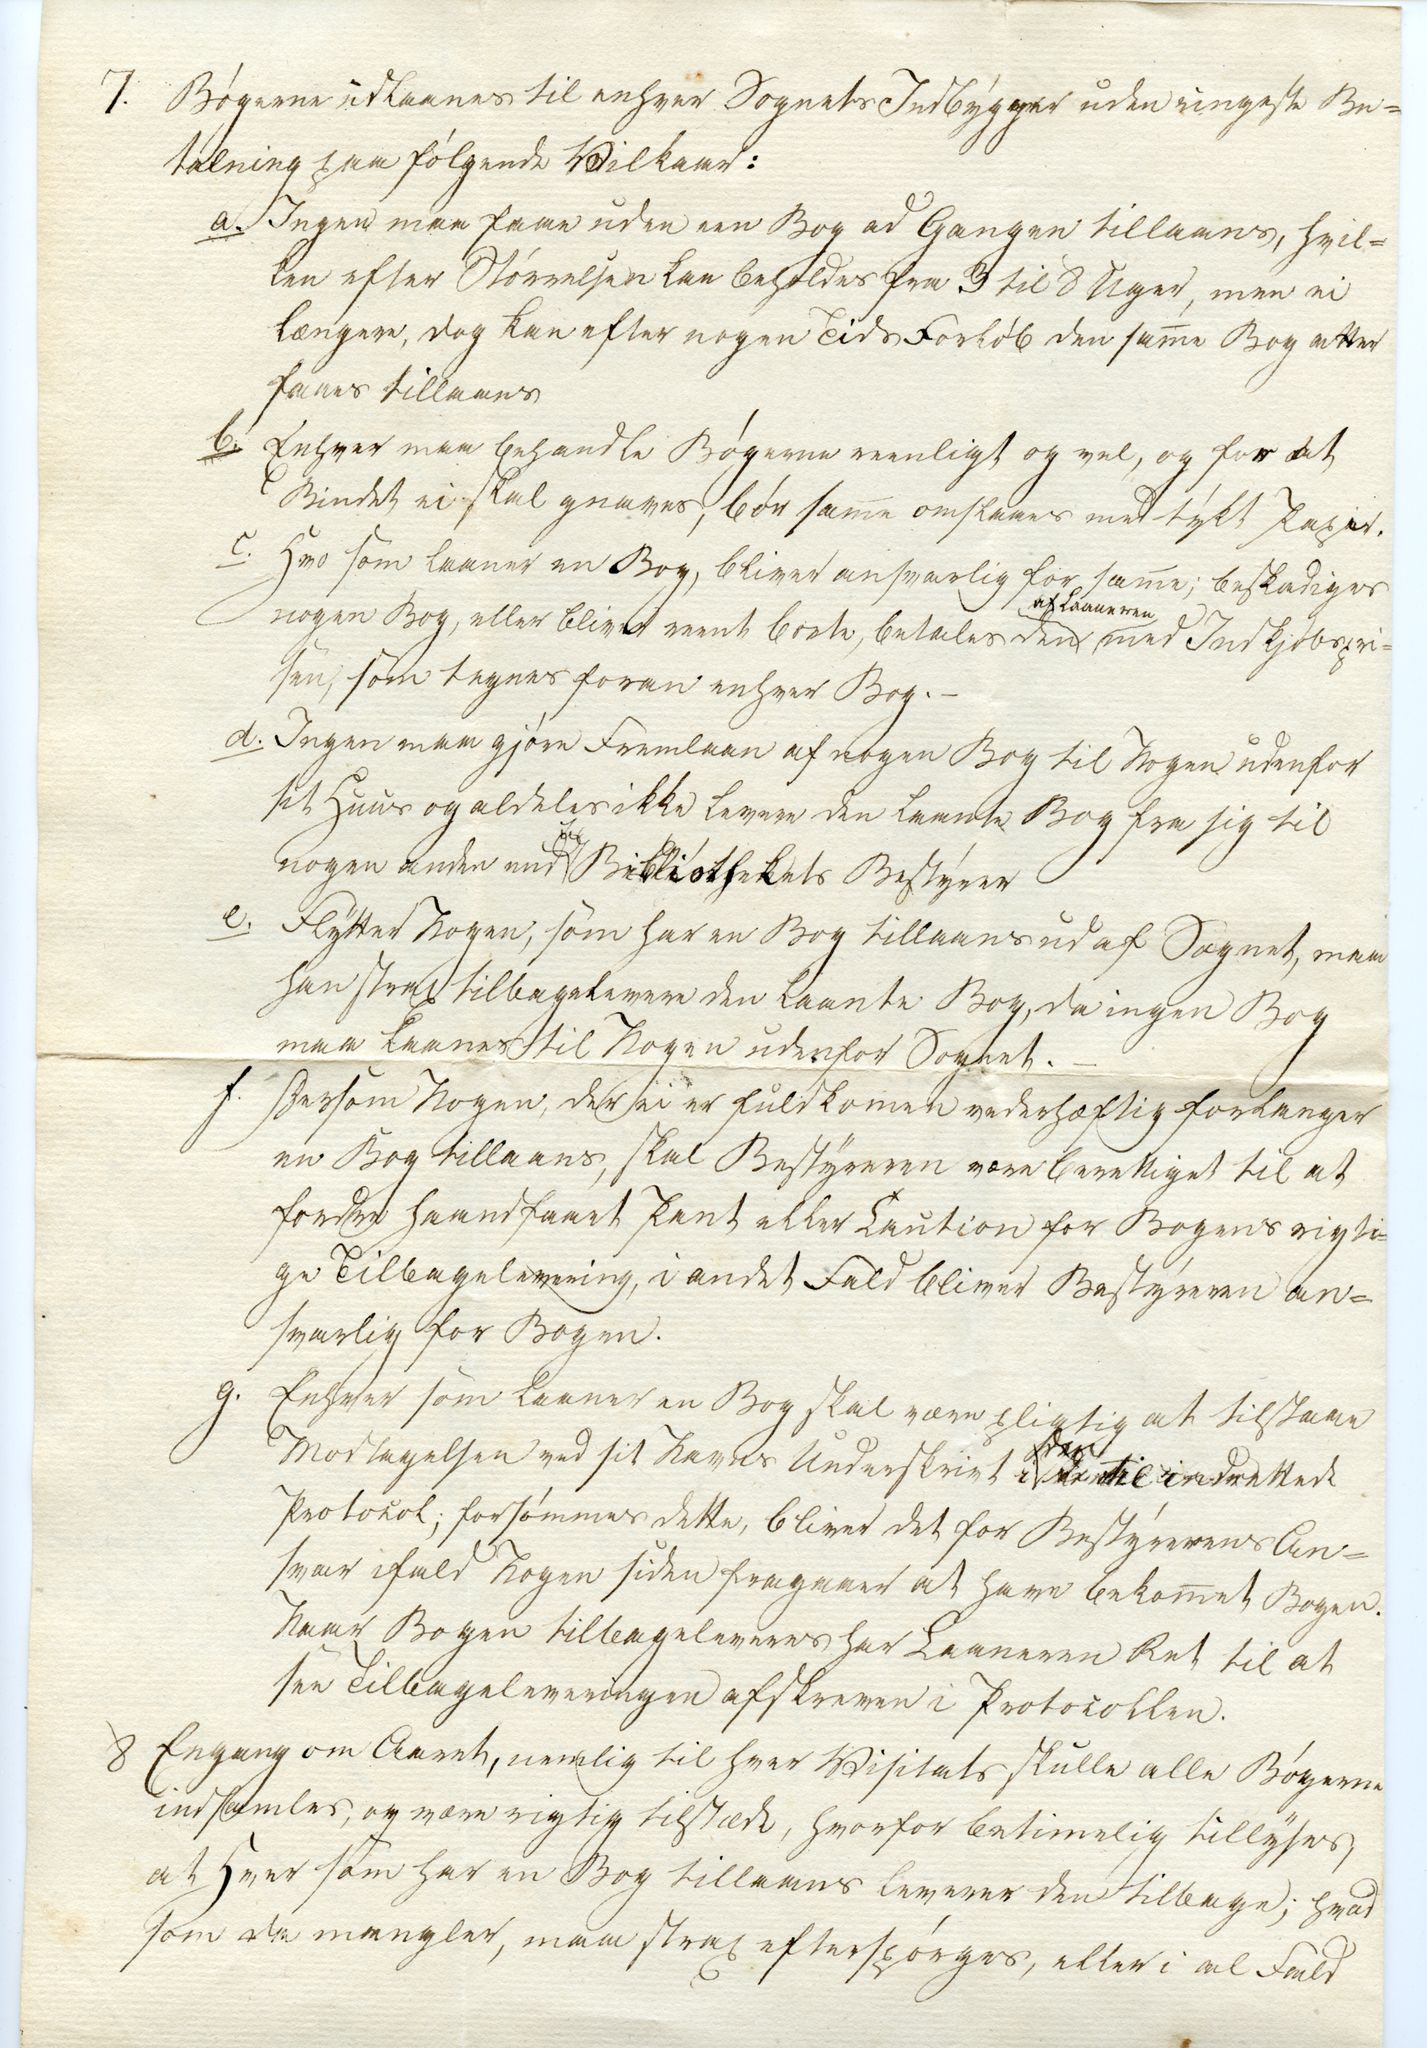 7. Bøgerne udlaanes til enhver Sognets Indbygger uden ringeste Be=
talning paa følgende Vilkaar:
a. Ingen maa faae uden een Bog ad Gangen tillaans, hvil=
ken efter Størrelsen kan beholdes fra 3 til 8 Uger, men ei
længere, dog kan efter nogen Tids Forløb den sam̅e Bog atter
faaes tillaans
b. Enhver maa behandle Bøgerne reenligt og vel, og for at
Bindet ei skal gnaves, bør sam̅e omslaaes med tykt Papir.
c. Hvo som laaner en Bog, bliver ansvarlig for sam̅e; beskadiges
af Laaneren
nogen Bog, eller bliver reent borte, betales den med Indkjøbspri=
sen, som tegnes foran enhver Bog.-
d. Ingen maa gjøre Fremlaan af nogen Bog til Nogen udenfor
sit Huus og aldeles ikke levere den laante Bog fra sig til
nogen anden end Bibliothekets Bestyrer
e. Flytter Nogen, som har en Bog tillaans ud af Sognet, maa
han strax tilbagelevere den laante Bog, da ingen Bog
maa laanes til Nogen udenfor Sognet.-
f. Dersom Nogen, der ei er fuldkomen vederhæftig forlanger
en Bog tillaans, skal Bestyreren være berettiget til at
fordre haandfaaet Pant eller Caution for Bogens rigti=
ge Tilbagelevering, i andet Fald bliver Bestyreren an=
svarlig for Bogen.
g. Enhver som laaner en Bog skal være pligtig at tilstaae
Modtagelsen ved sit Navns Underskrivt i den dertil indrettede
Protocol; forsømmes dette, bliver det for Bestyrerens An=
svar ifald Nogen siden fragaaer at have bekom̅et Bogen.
Naar Bogen tilbageleveres har Laaneren Ret til at
see Tilbageleveringen afskreven i Protocollen.
8 Engang om Aaret, nemlig til hver Visitats skulle alle Bøgerne
indsamles, og være rigtig tilstæde, hvorfor betimelig tillyses,
at Hver som har en Bog tillaans leverer den tilbage; hvad
som da mangler, maa strax efterspørges, eller i al Fald